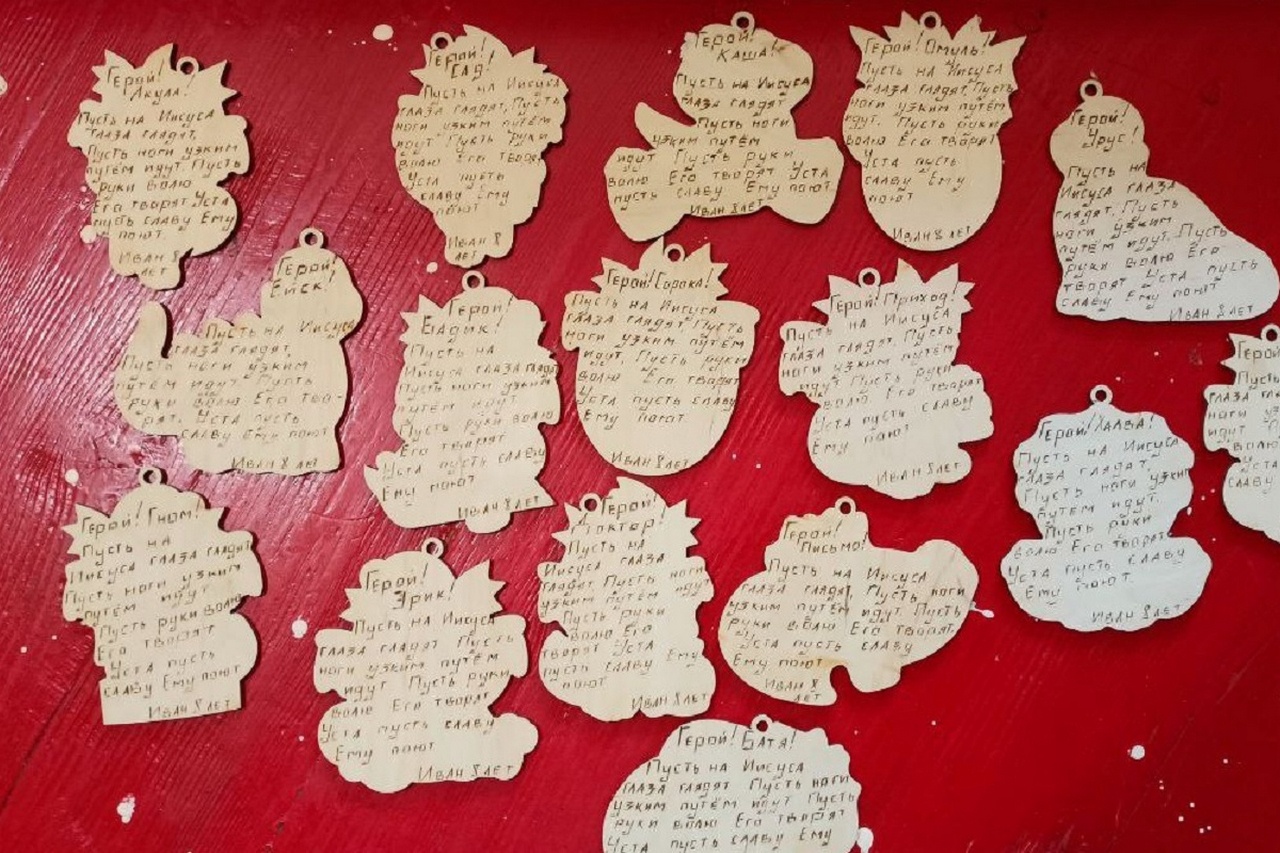 Герой!
Акула!
Пусть на Иисуса
глаза глядят,
Пусть ноги узким
путём идут Пусть
руки волю
Его творят Уста
пусть славу Ему
поют.
Иван 8
лет
Герой!
САД!
Пусть на Иисуса
глаза глядят, Пусть
ноги узким путём
идут Пусть руки
волю Его творят
Уста пусть
славу Ему
поют
Иван 8
лет
Герой!
Каша!
Пусть на Иисуса
глаза глядят
Пусть ноги
узким путём
идут Пусть руки
волю Его творят Уста
пусть славу Ему поют.
Иван 8 лет
Герой! Омуль!
Пусть на Иисуса
глаза глядят, Пусть
ноги узким путём
идут. Пусть руки
волю Его творят
Уста пусть
славу Ему
поют
Иван 8 лет
Герой!
Урус!
Пусть на
Иисуса глаза
глядят, Пусть
ноги узким
путём идут. Пусть
руки волю Его
творят Уста пусть
славу Ему поют
Иван 8 лет
Герой!
Ейск!
Пусть на Иисуса
глаза глядят,
Пусть ноги узким
путём идут. Пусть
руки волю Его тво-
рят. Уста пусть
славу Ему поют
Иван 8 лет
Герой
Пусть на
Иисуса глаза глядят
Пусть ноги узким
путём идут
Пусть руки волю
Его творят
Уста пусть славу
Ему поют
Иван 8 лет
Герой! Сорока!
Пусть на Иисуса
глаза глядят, Пусть
ноги узким путём
идут, Пусть руки
волю Его творят
Уста пусть славу
Ему поют
Иван 8 лет
Герой! Приход!
Пусть на Иисуса
глаза глядят. Пусть
ноги узким путём
идут Пусть руки
волю Его творят
Уста пусть славу
Ему поют
Иван 8 лет
Герой! Халва!
Пусть на Иисуса
глаза глядят,
Пусть ноги узким
путём идут.
Пусть руки
волю Его творят
Уста пусть славу
Ему поют.
Иван 8 лет
Герой
Пусть
глаза
ноги
идут
волю
Уста
славу
Герой! Гном!
Пусть на
Иисуса глаза глядят
Пусть ноги узким
путём идут
Пусть руки волю
Его творят
Уста пусть
славу Ему поют
Иван 8 лет
Герой!
Эрик!
Пусть на Иисуса
глаза глядят Пусть
ноги узким путём
идут Пусть руки
волю Его творят
Уста пусть славу
Ему поют
Иван 8 лет
Герой!
Доктор!
Пусть на
Иисуса глаза
глядят Пусть ноги
узким путём идут
Пусть руки
волю Его
творят Уста
пусть славу Ему
поют
Иван 8 лет
Герой!
Письмо!
Пусть на Иисуса
глаза глядят, Пусть ноги
узким путём идут Пусть
руки волю Его творят.
Уста пусть славу
Ему поют
Иван 8
лет
Герой! Батя!
Пусть на Иисуса
глаза глядят Пусть ноги
узким путём идут Пусть
руки волю Его творят
Уста пусть славу Ему